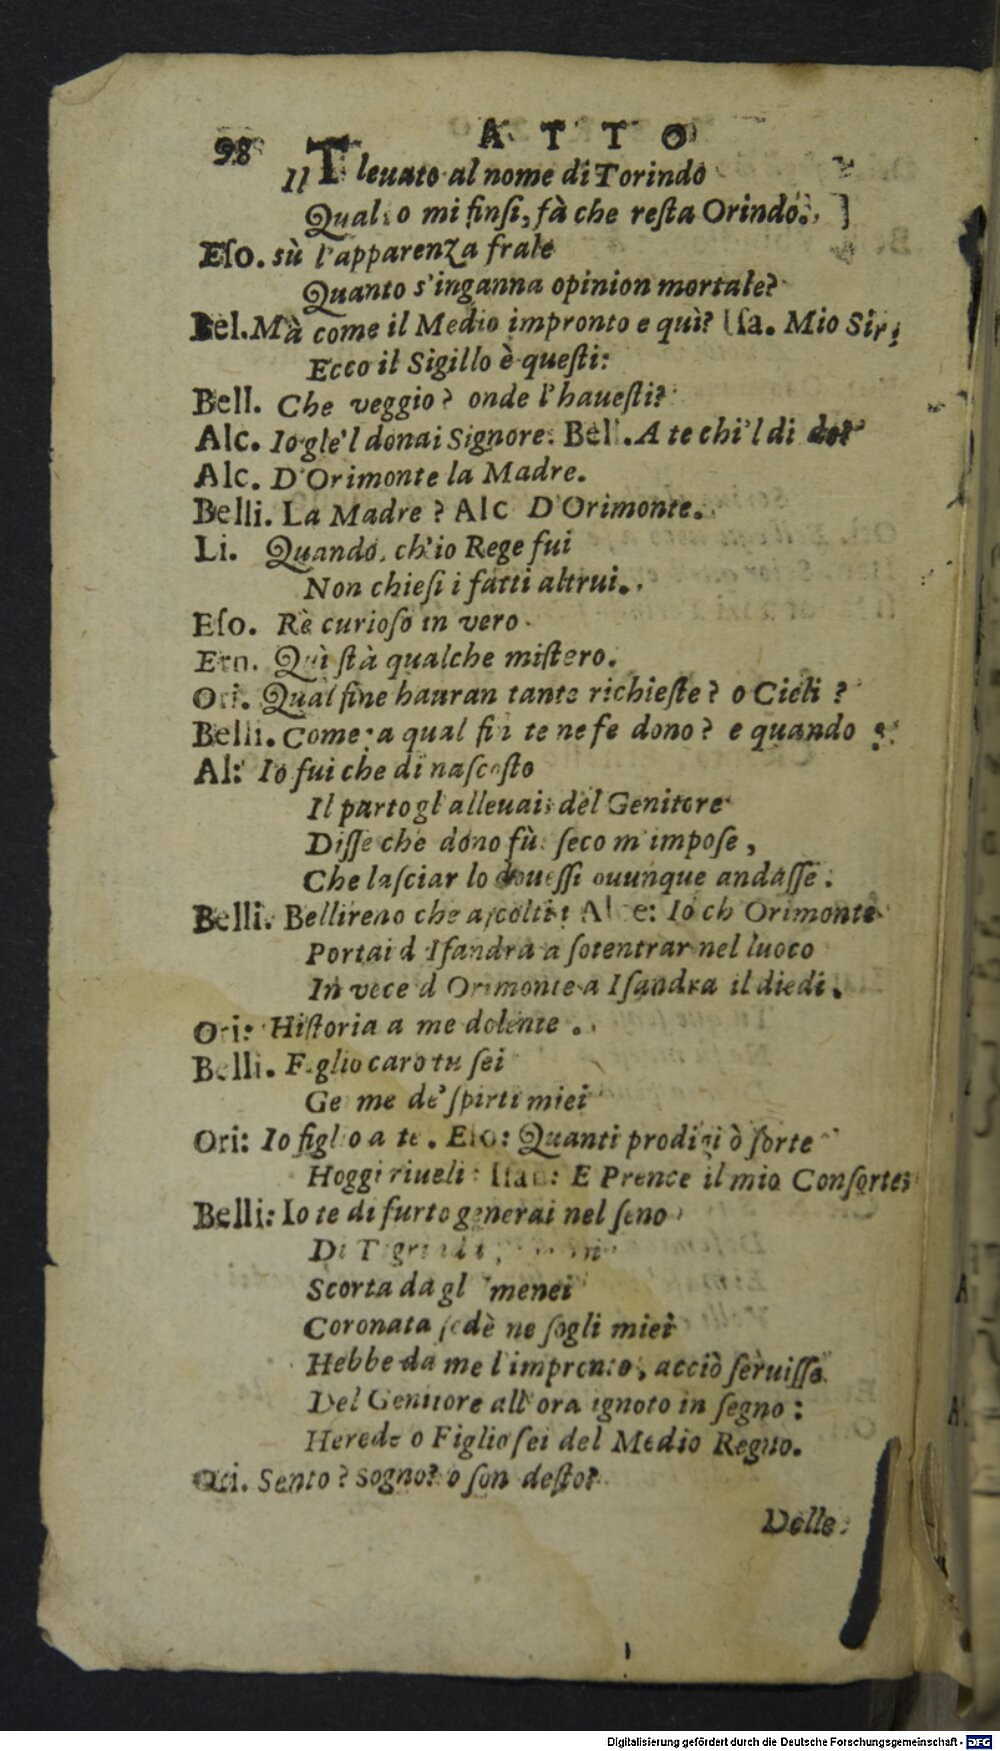 98 ATTO
Il T leuato al nome di Torindo
Qual o mi finſi, fà che reſta Orindo.
Eſo. sù l'apparenza frale
Quanto s'inganna opinion mortale?
Bel. Mà come il Medio impronto e quì? Iſa. Mio Sir,
Ecco il Sigillo è queſti:
Bell. Che veggio? onde l'haueſti?
Alc. Io gle'l donai Signore. Bell. A te chi'l di
Alc. D'Orimonte la Madre.
Belli. La Madre? Alc D'Orimonte.
Li. Quando, ch'io Rege fui
Non chieſi i fatti altrui.
Eſo. Rè curioſo in vero
Ern. Quì ſtà qualche miſtero.
Ori. Qual fine hauran tante richieſte? o Cieli?
Belli. Come, a qual fin te ne fe dono? e quando?
Al: Io fui che di naſcoſto
Il parto gl'alleuai, del Genitore
Diſſe che dono fù ſeco m'impoſe,
Che laſciar lo doueſſi ouunque andaſſe.
Belli. Bellireno che aſcolti? Alce: Io ch Orimonte
Portai d Iſandra a ſotentrar nel luoco
In vece d Orimonte a Iſandra il diedi.
Ori: Hiſtoria a me dolente.
Belli. Figlio caro tu ſei
Ge me de' ſpirti miei
Ori: Io figlio a te. Eſo: Quanti prodigi ò ſorte
Hoggi riueli: Iſan: E Prence il mio Conſorte;
Belli: Io te di furto generai nel ſeno
Di
Scorta da gl menei
Coronata ſedè ne ſogli miei
Hebbe da me l'impronto, acciò ſeruiſſe
Del Genitore all'ora ignoto in ſegno:
Herede o Figlio ſei del Medio Regno.
Ori. Sento? sogno? o ſon deſto?
Delle
Digitalisierung gefördert durch die Deutsche Forschungsgemeinschaft - DFG